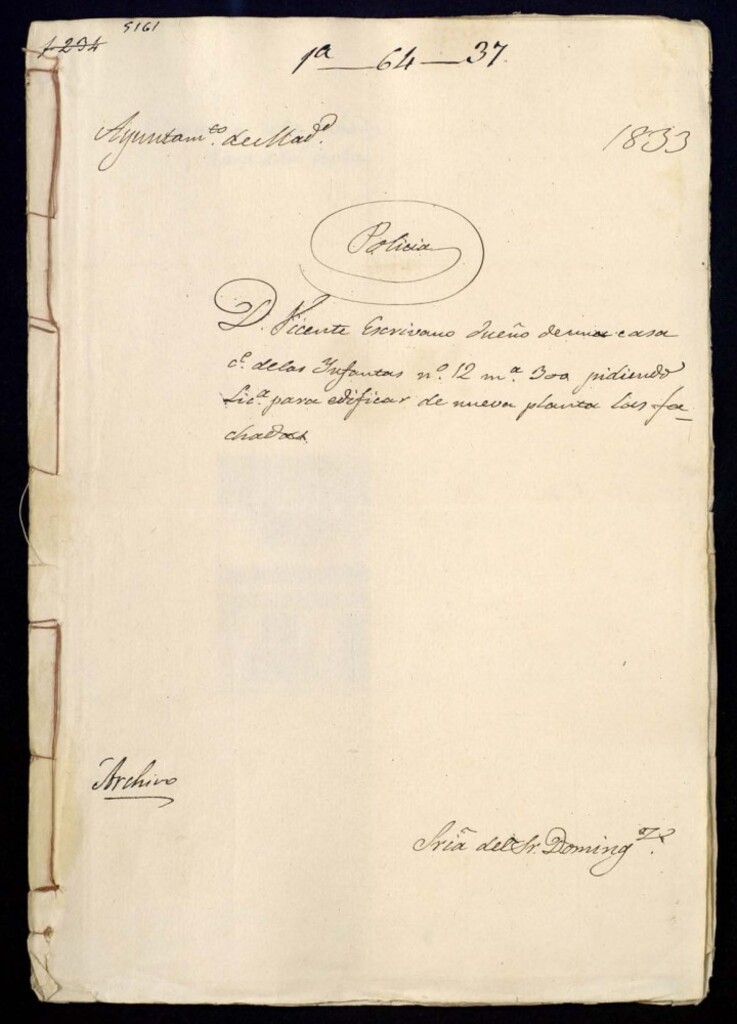 5161
1-234
1ª—64—37.
Ayuntam.to de Mad.d
1833
Policia
D. Vicente Escrivano dueño de una casa
c.e de las Infantas n.o 12 m.a 300 pidiendo
lic.a para edificar de nueva planta las fa-
chadas.
Archivo
Sria del Sr. Doming.z